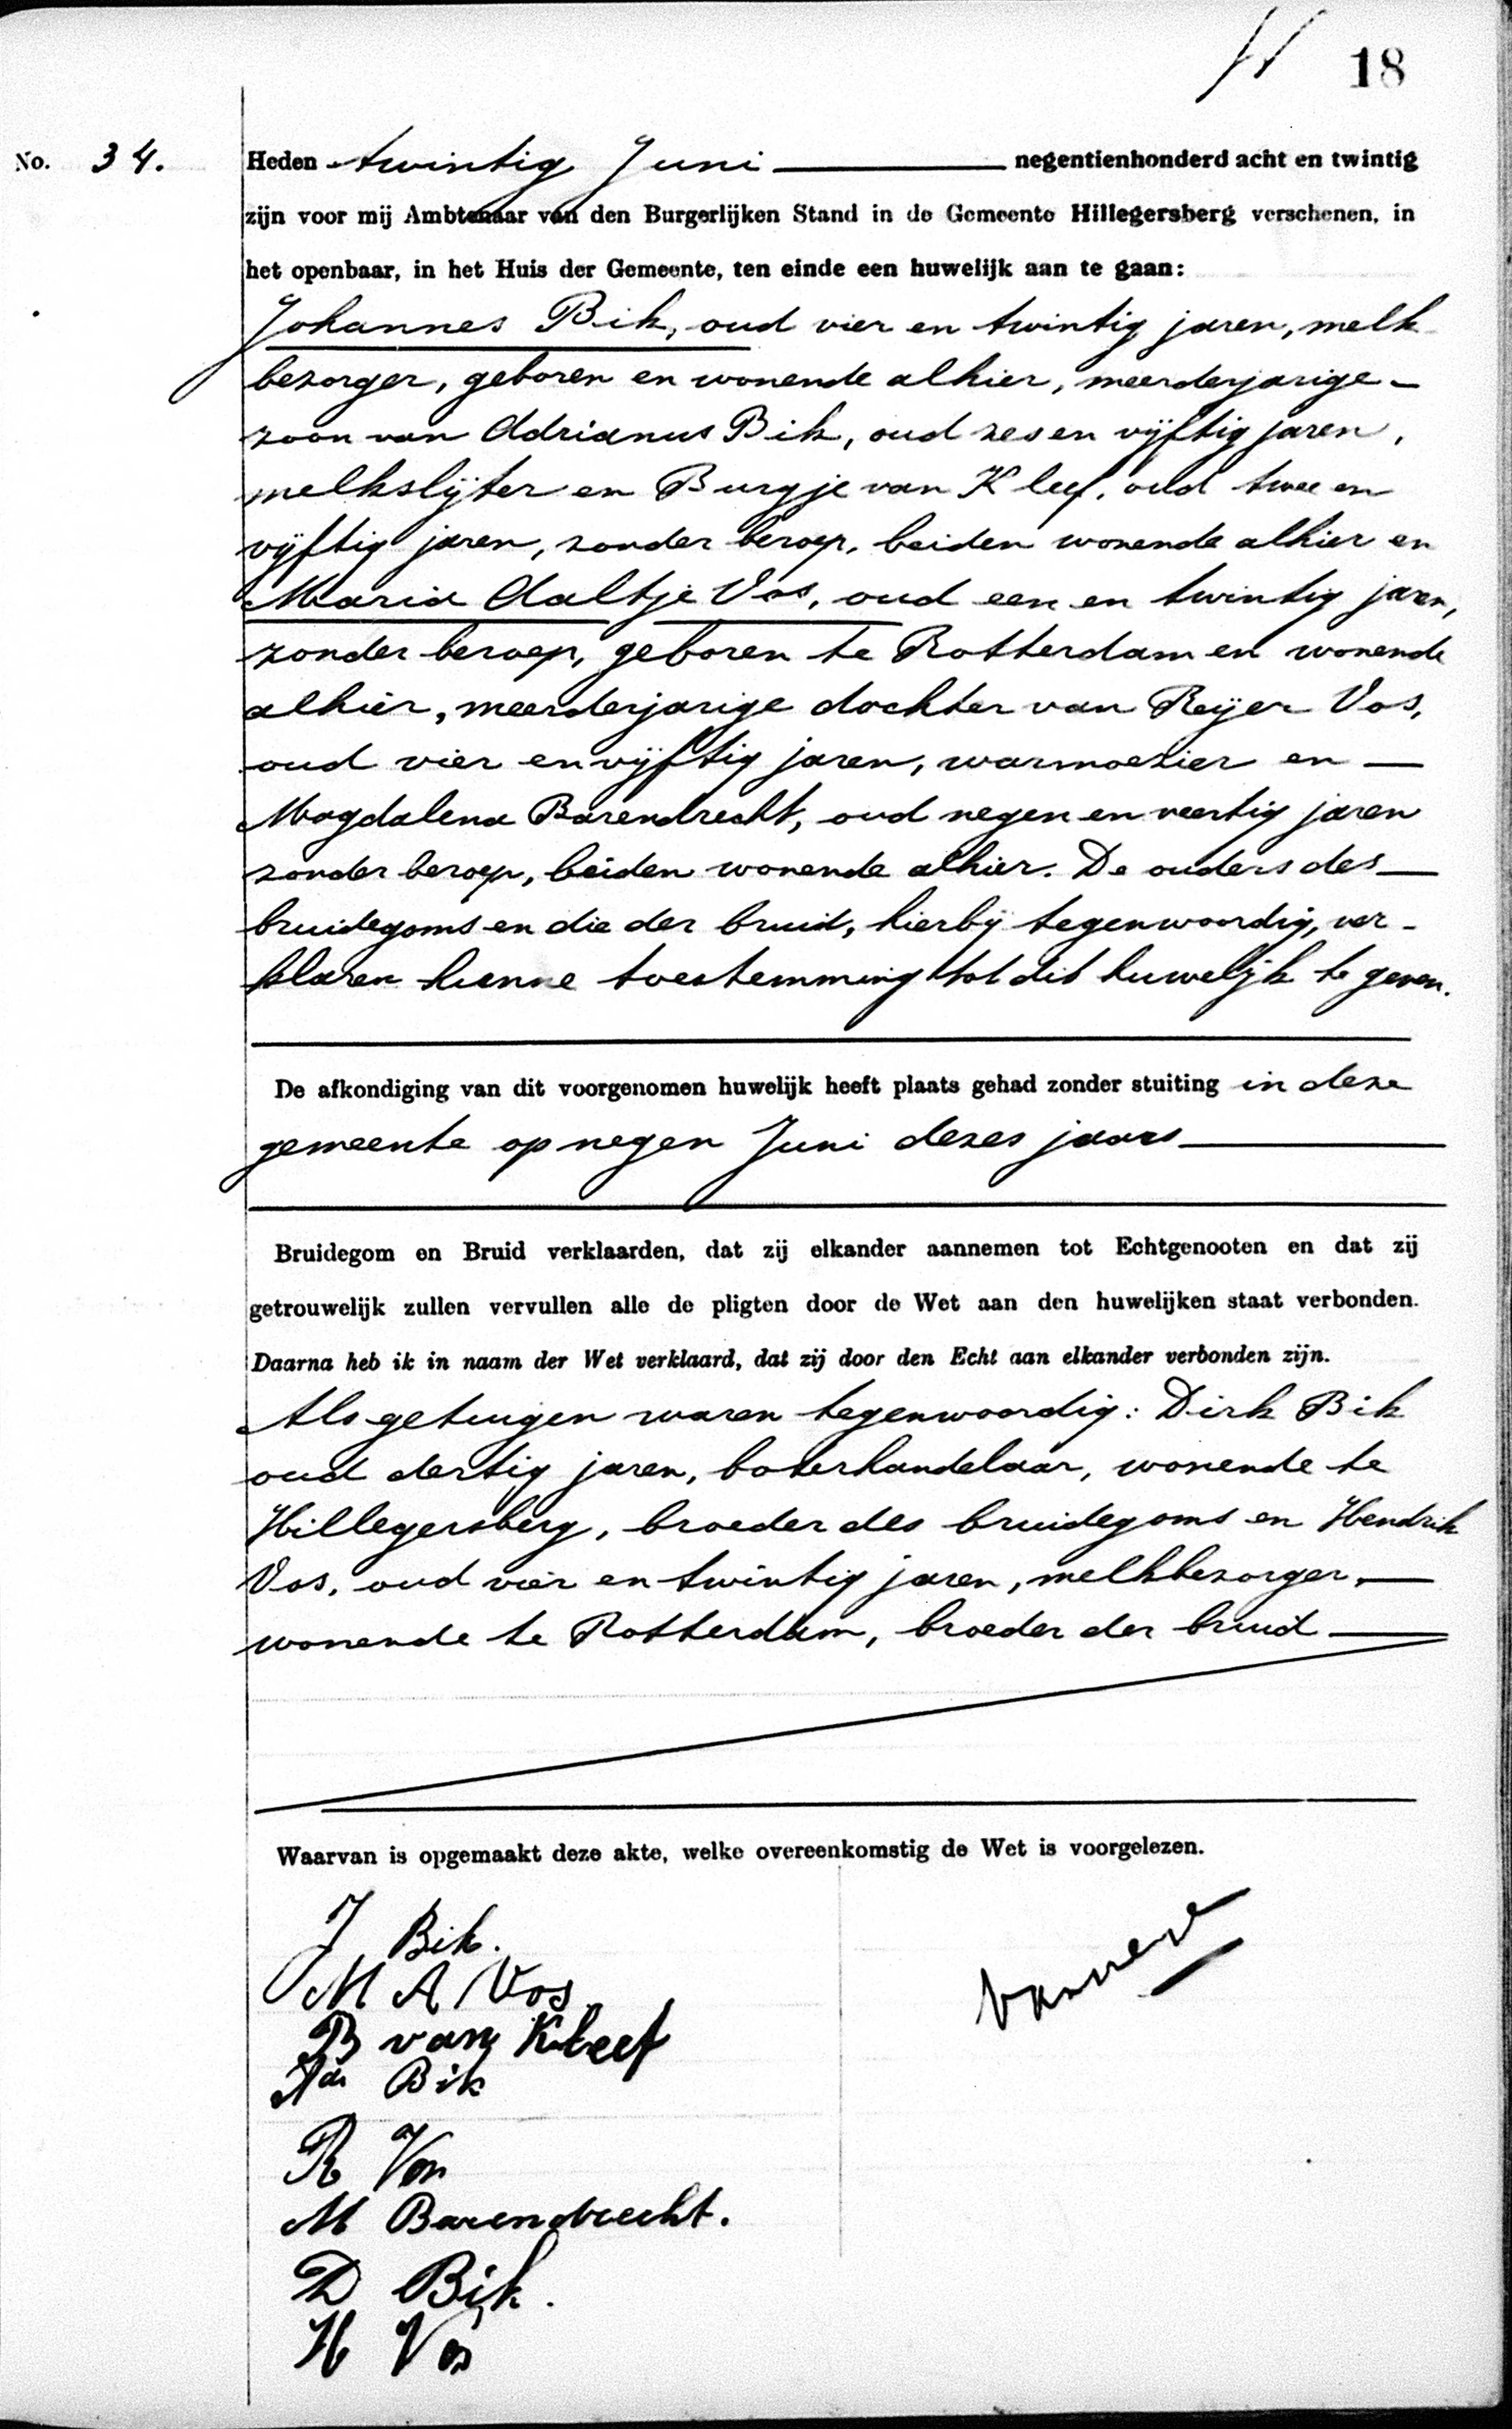 18
No. 34. Heden twintig Juni negentienhonderd acht en twintig
zijn voor mij Ambtenaar van den Burgerlijken Stand in de Gemeente Hillegersberg verschenen, in
het openbaar, in het Huis der Gemeente, ten einde een huwelijk aan te gaan:
Johannes Bik, oud vier en twintig jaren, melk
bezorger, geboren en wonende alhier, meerderjarige
zoon van Adrianus Bik, oud zes en vijftig jaren,
melkslijter en Burgje van Kleef, oud twee en
vijftig jaren, zonder beroep, beiden wonende alhier en
Maria Aaltje Vos, oud een en twintig jaren,
zonder beroep, geboren te Rotterdam en wonende
alhier, meerderjarige dochter van Reijer Vos,
oud vier en vijftig jaren, warmoezier en
Magdalena Barendrecht, oud negen en veertig jaren
zonder beroep, beiden wonende alhier. De ouders des
bruidegoms en die der bruid, hierbij tegenwoordig, ver-
klaren hunne toestemming tot dit huwelijk te geven.
De afkondiging van dit voorgenomen huwelijk heeft plaats gehad zonder stuiting in deze
gemeente op negen Juni dezes jaars
Bruidegom en Bruid verklaarden, dat zij elkander aannemen tot Echtgenooten en dat zij
getrouwelijk zullen vervullen alle de pligten door de Wet aan den huwelijken staat verbonden.
Daarna heb ik in naam der Wet verklaard, dat zij door den Echt aan elkander verbonden zijn.
Als getuigen waren tegenwoordig: Dirk Bik
oud dertig jaren, boterhandelaar, wonende te
Hillegersberg, broeder des bruidegoms en Hendrik
Vos, oud vier en twintig jaren, melkbezorger,
wonende te Rotterdam, broeder der bruid
Waarvan is opgemaakt deze akte, welke overeenkomstig de Wet is voorgelezen.
J Bik.
M A Vos
B van Kleef
Ads Bik
R Vos
M Barendrecht.
D Bik.
H Vos